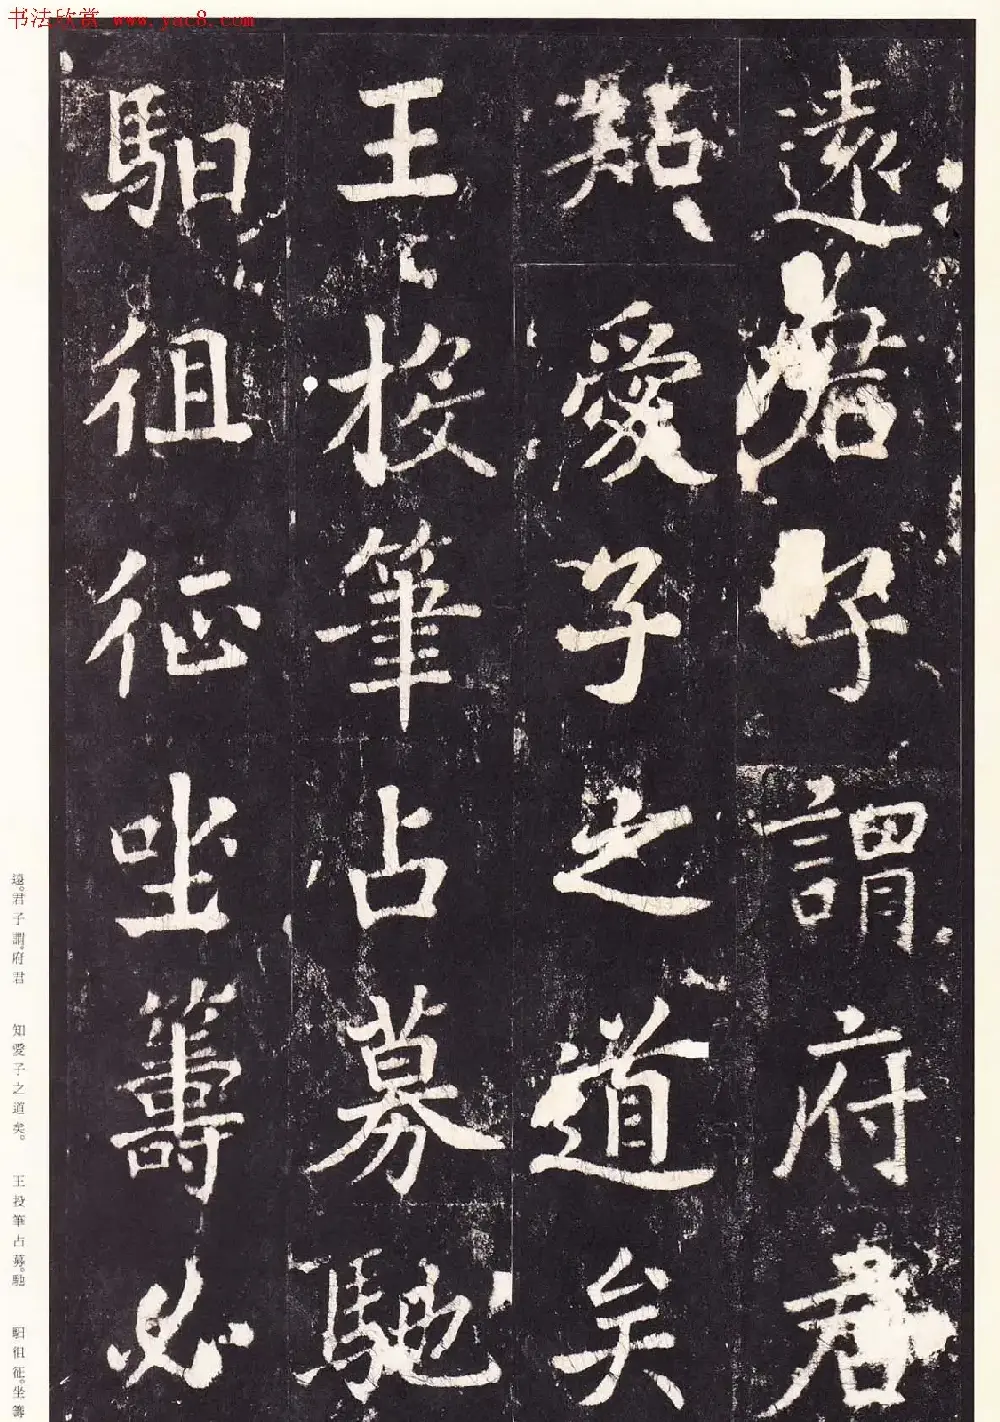 书法欣赏 www.yac8.com
遠君子謂府君
知愛子之道矣
王投筆占募馳
馹徂征坐籌必
遠。君子謂府君 知愛子之道矣。 王投筆占募。馳 馹徂征。坐籌